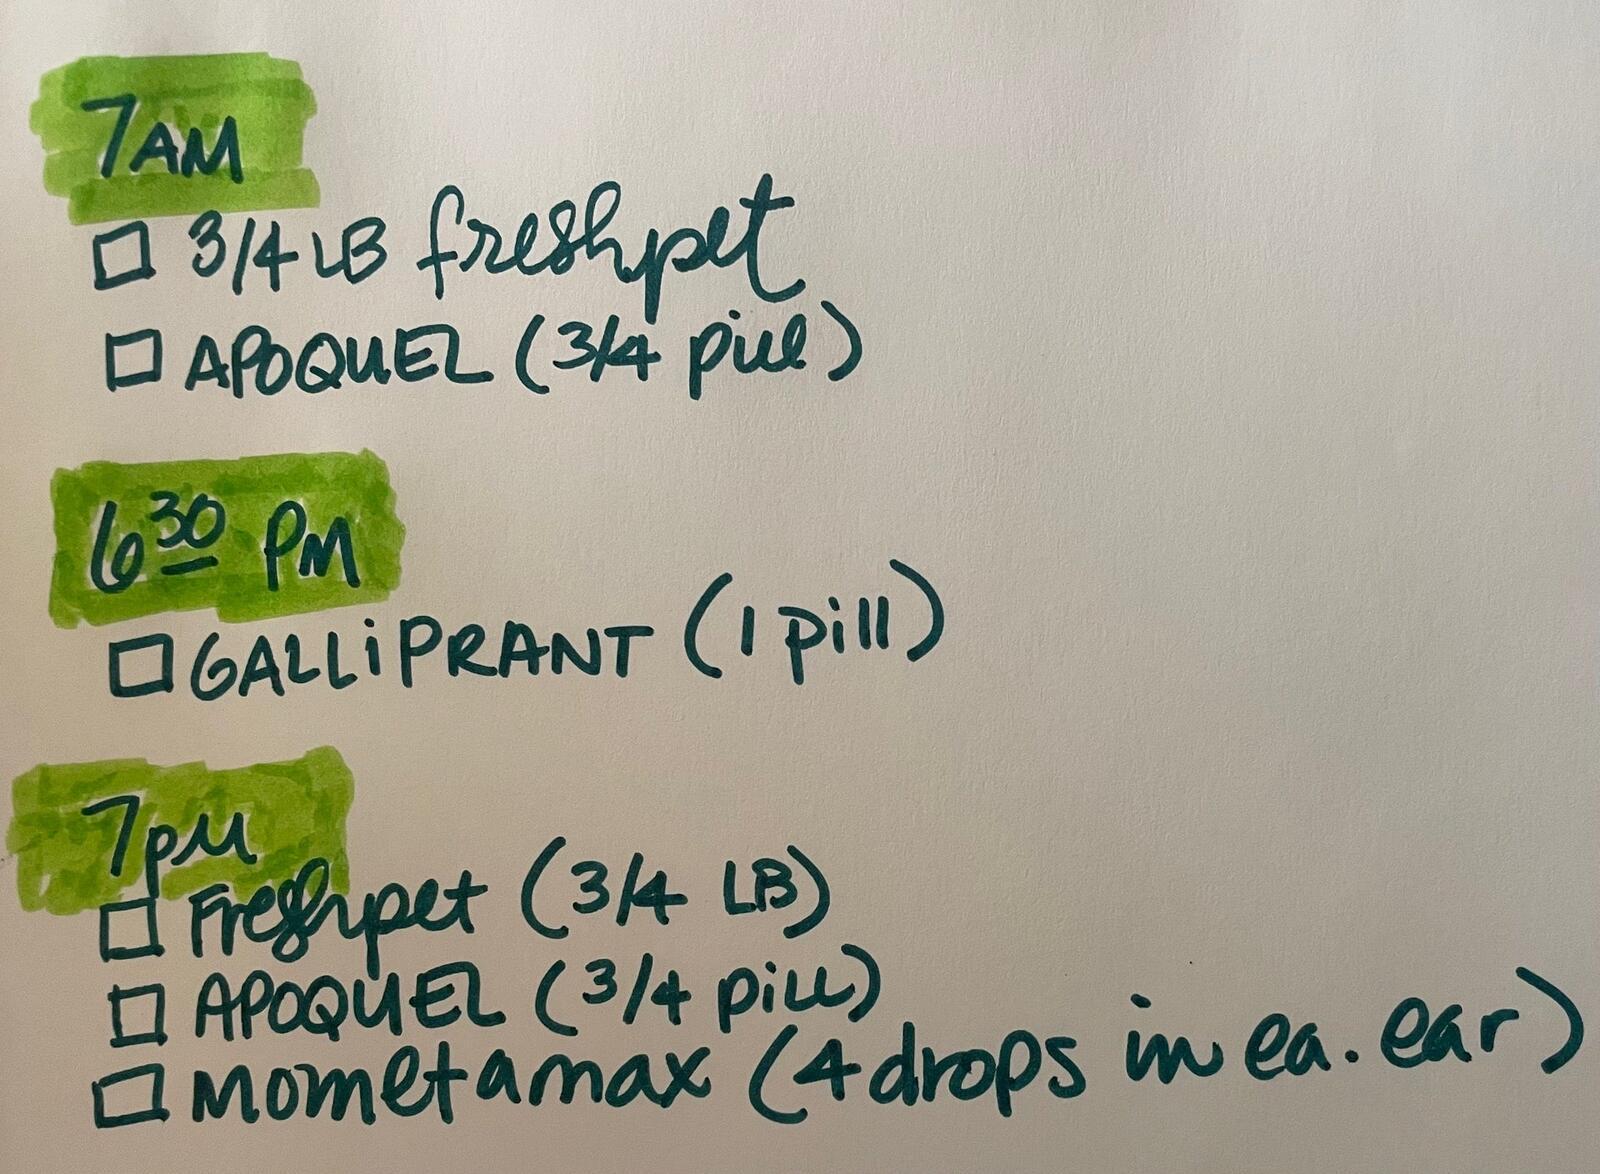 7AM
☐ 3/4 LB freshpet
☐ APOQUEL (3/4 pill)
6³⁰ PM
☐ GALLiPRANT (1 pill)
7pM
☐ Freshpet (3/4 LB)
☐ APOQUEL (3/4 pill)
☐ Mometamax (4 drops in ea. ear)